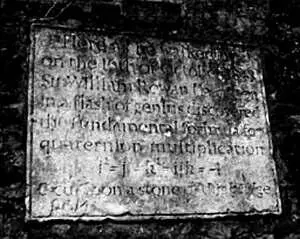 Here as he walked by
on the 16th of October
Sir William Rowan Hamilton
in a flash of genius discovered
the fundamental formula for
quaternion multiplication
i² = j² = k² = ijk = -1
& cut it on a stone of this bridge